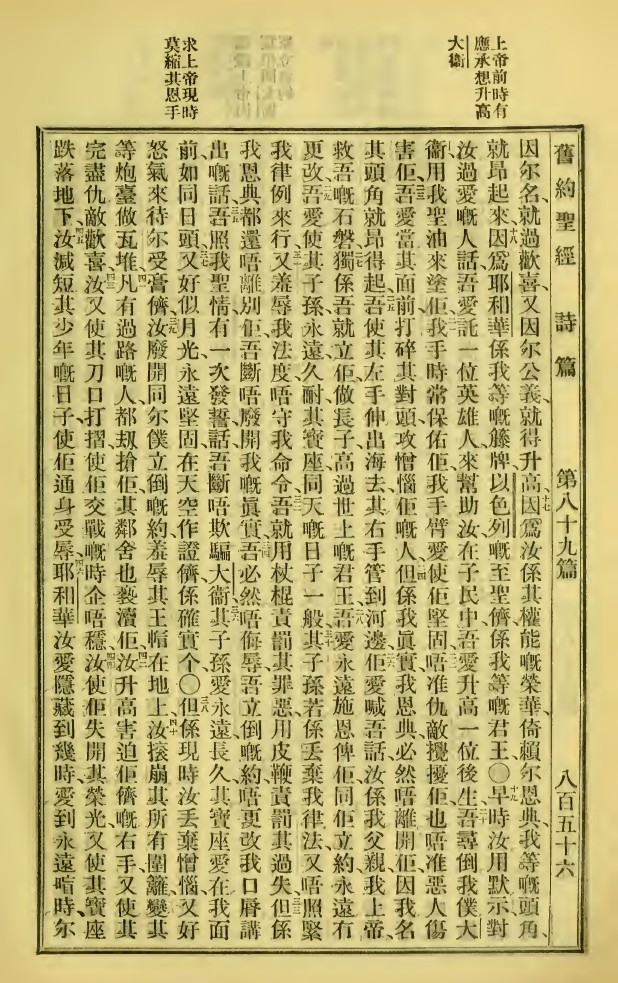 上帝前時有
應承想升高
大衞
求上帝現時
莫縮其恩手
舊約聖經 詩篇 第八十九篇 八百五十六
因尔名、就過歡喜、又因尔公義、就得升高、十七因爲汝係其權能嘅榮華、倚賴尔恩典、我等嘅頭角、
就昂起來、十八因爲耶和華係我等嘅籐牌、以色列嘅至聖儕係我等嘅君王、〇十九早時汝用默示對
汝過愛嘅人話、吾愛託一位英雄人來幫助、汝在子民中、吾愛升高一位後生、二十吾尋倒我僕大
衞、用我聖油來塗佢、二一我手時常保佑佢、我手臂愛使佢堅固、二二唔准仇敵攪擾佢、也唔准惡人傷
害佢、二三吾愛當其面前打碎其對頭、攻憎惱佢嘅人、二四但係我眞實我恩典、必然唔離開佢、因我名
其頭角就昂得起、二五吾使其左手伸出海去、其右手管到河邊、二六佢愛喊吾話、汝係我父親、我上帝、
救吾嘅石磐、二七獨係吾就立佢做長子、高過世上嘅君王、二八吾愛永遠施恩俾佢、同佢立約、永遠有
更改、二九吾愛使其子孫永遠久耐、其寶座同天嘅日子一般、三十其子孫若係丟棄我律法、又唔照緊
我律例來行、三一又羞辱我法度、唔守我命令、三二吾就用杖棍責罰其罪惡、用皮鞭責罰其過失、三三但係
我恩典都還唔離別佢、吾斷唔廢開我嘅眞實、三四吾必然唔侮辱吾立倒嘅約、唔更改我口唇講
出嘅話、三五吾照我聖情有一次發誓話、吾斷唔欺騙大衞、三六其子孫愛永遠長久、其寶座愛在我面
前如同日頭、三七又好似月光永遠堅固、在天空作證儕係確實个、〇三八但係現時汝丟棄憎惱、又好
怒氣來待尔受膏儕、三九汝廢開同尔僕立倒嘅約、羞辱其王帽在地上、四十汝㨰崩其所有圍籬、變其
等炮臺做瓦堆、四一凡有過路嘅人、都刼搶佢、其鄰舍也褻瀆佢、四二汝升高害迫佢儕嘅右手、又使其
完盡仇敵歡喜、四三汝又使其刀口打摺、使佢交戰嘅時企唔穩、四四汝使佢失開其榮光、又使其寶座
跌落地下、四五汝減短其少年嘅日子、使佢通身受辱、四六耶和華、汝愛隱藏到幾時、愛到永遠咱時、尔